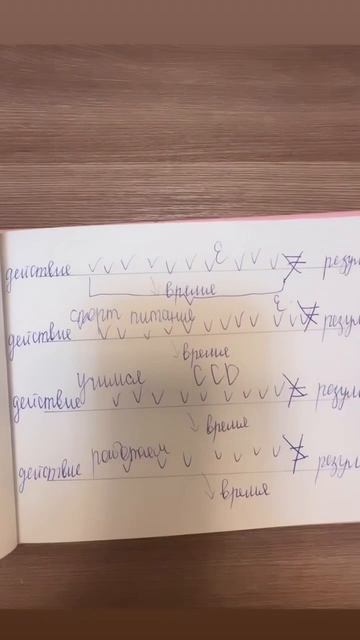 действие резул
время
спорт питание
действие резул
время
учимся ССД
действие резул
время
работаем
действие резул
время